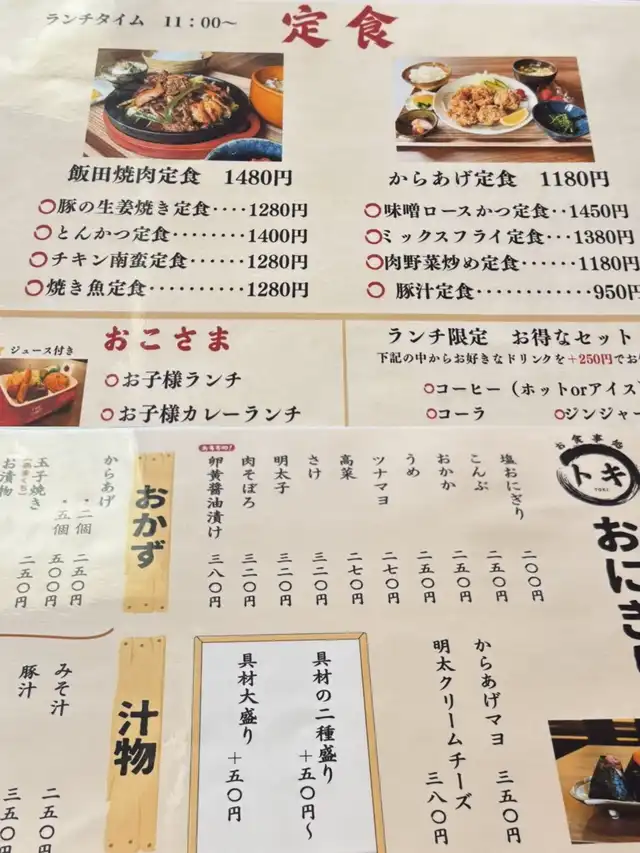 ランチタイム 11：00〜
定食
飯田焼肉定食 1480円
からあげ定食 1180円
〇豚の生姜焼き定食････1280円
〇とんかつ定食･････････1400円
〇チキン南蛮定食･･････1280円
〇焼き魚定食･･････････1280円
〇味噌ロースかつ定食･･1450円
〇ミックスフライ定食･･･1380円
〇肉野菜炒め定食･･････1180円
〇豚汁定食････････････950円
ジュース付き
おこさま
〇お子様ランチ
〇お子様カレーランチ
ランチ限定 お得なセット
下記の中からお好きなドリンクを+250円でお
〇コーヒー（ホットorアイス
〇コーラ
〇ジンジャー
お食事処
トキ
TOKI
おにぎり
塩おにぎり 二〇〇円
こんぶ 二五〇円
おかか 二五〇円
うめ 二五〇円
ツナマヨ 二七〇円
高菜 二七〇円
さけ 三二〇円
明太子 三二〇円
肉そぼろ 三二〇円
卵黄醤油漬け 三八〇円
からあげマヨ 三五〇円
明太クリームチーズ 三八〇円
具材の二種盛り +五〇円〜
具材大盛り +五〇円
おかず
からあげ
・二個 二五〇円
・五個 五〇〇円
玉子焼き 二五〇円
お漬物 二五〇円
汁物
みそ汁 二五〇円
豚汁 三五〇円